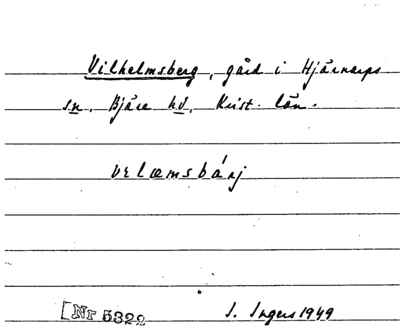 Vilhelmsberg, gård i Hjärnarps
sn. Bjäre hd. Krist. län.
vɛlæmsbárj
[Nr 5322
I. Ingers 1949